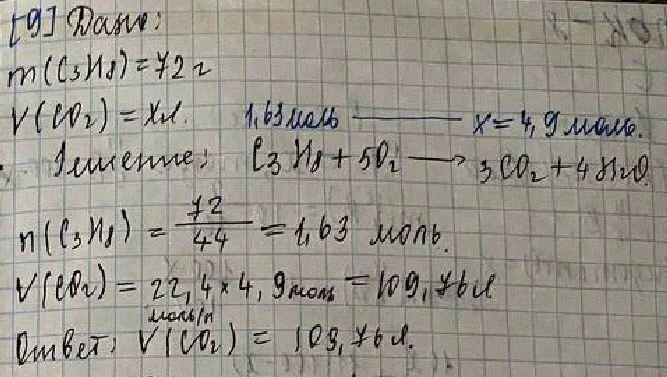 [9] Дано:
m(C₃H₈) = 72 г
V(CO₂) = Xл. 1,63 моль — x = 4,9 моль.
Решение: C₃H₈ + 5O₂ → 3CO₂ + 4H₂O
n(C₃H₈) = 72/44 = 1,63 моль.
V(CO₂) = 22,4 × 4,9моль = 109,76л
моль/л
Ответ: V(CO₂) = 109,76л.